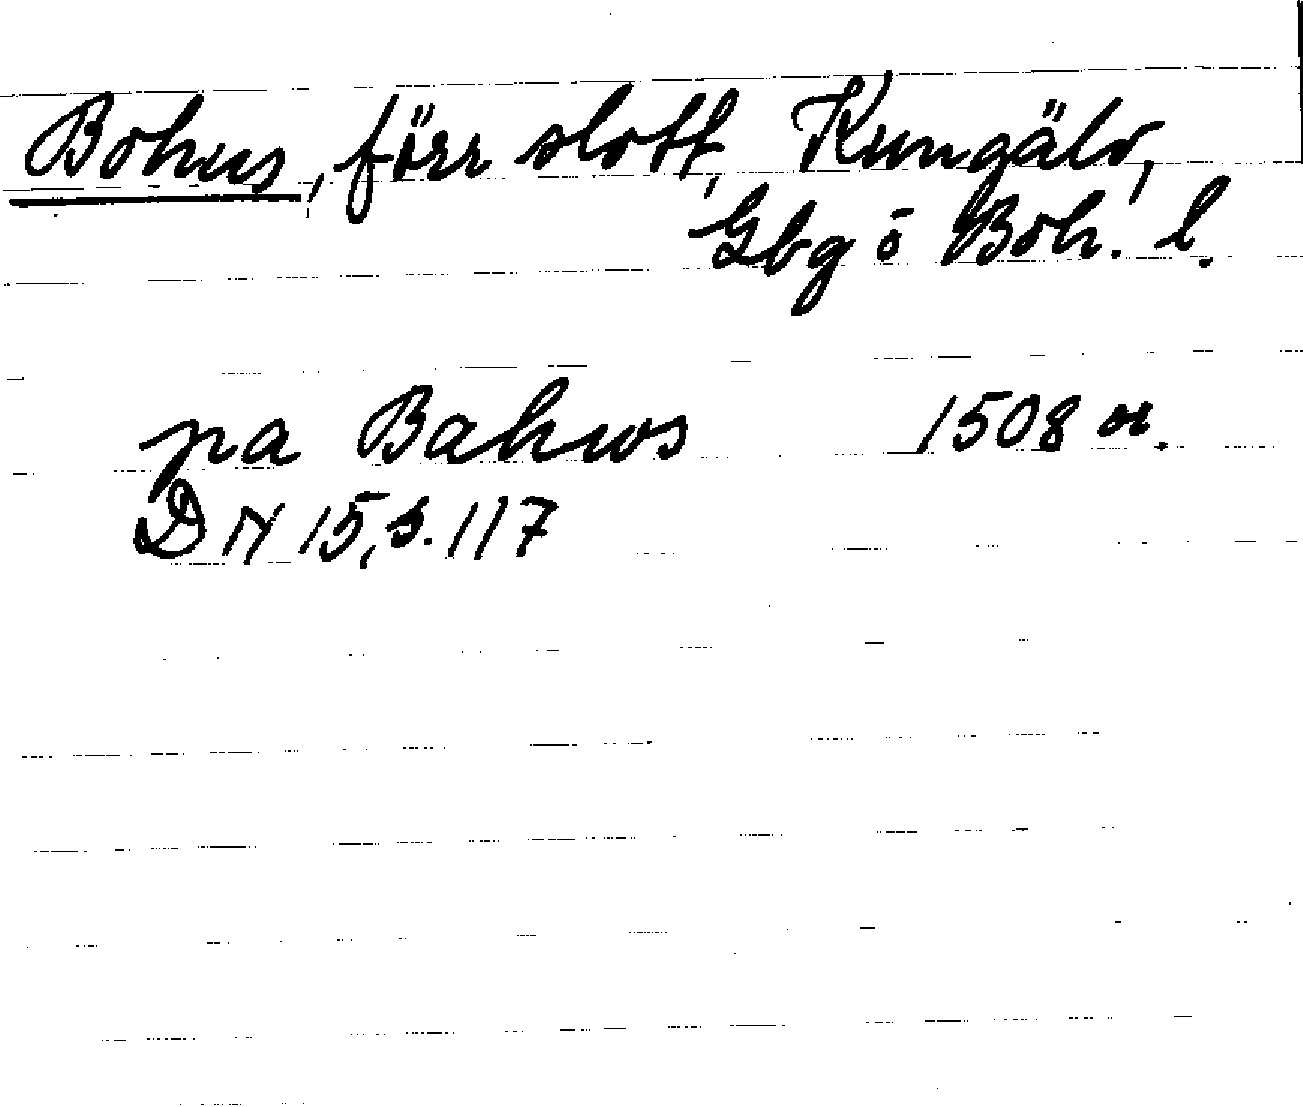 Bohus, förr slott, Kungälv,
Gbg o Boh. l.
pa Bahws 1508 or.
DN 15, s. 117